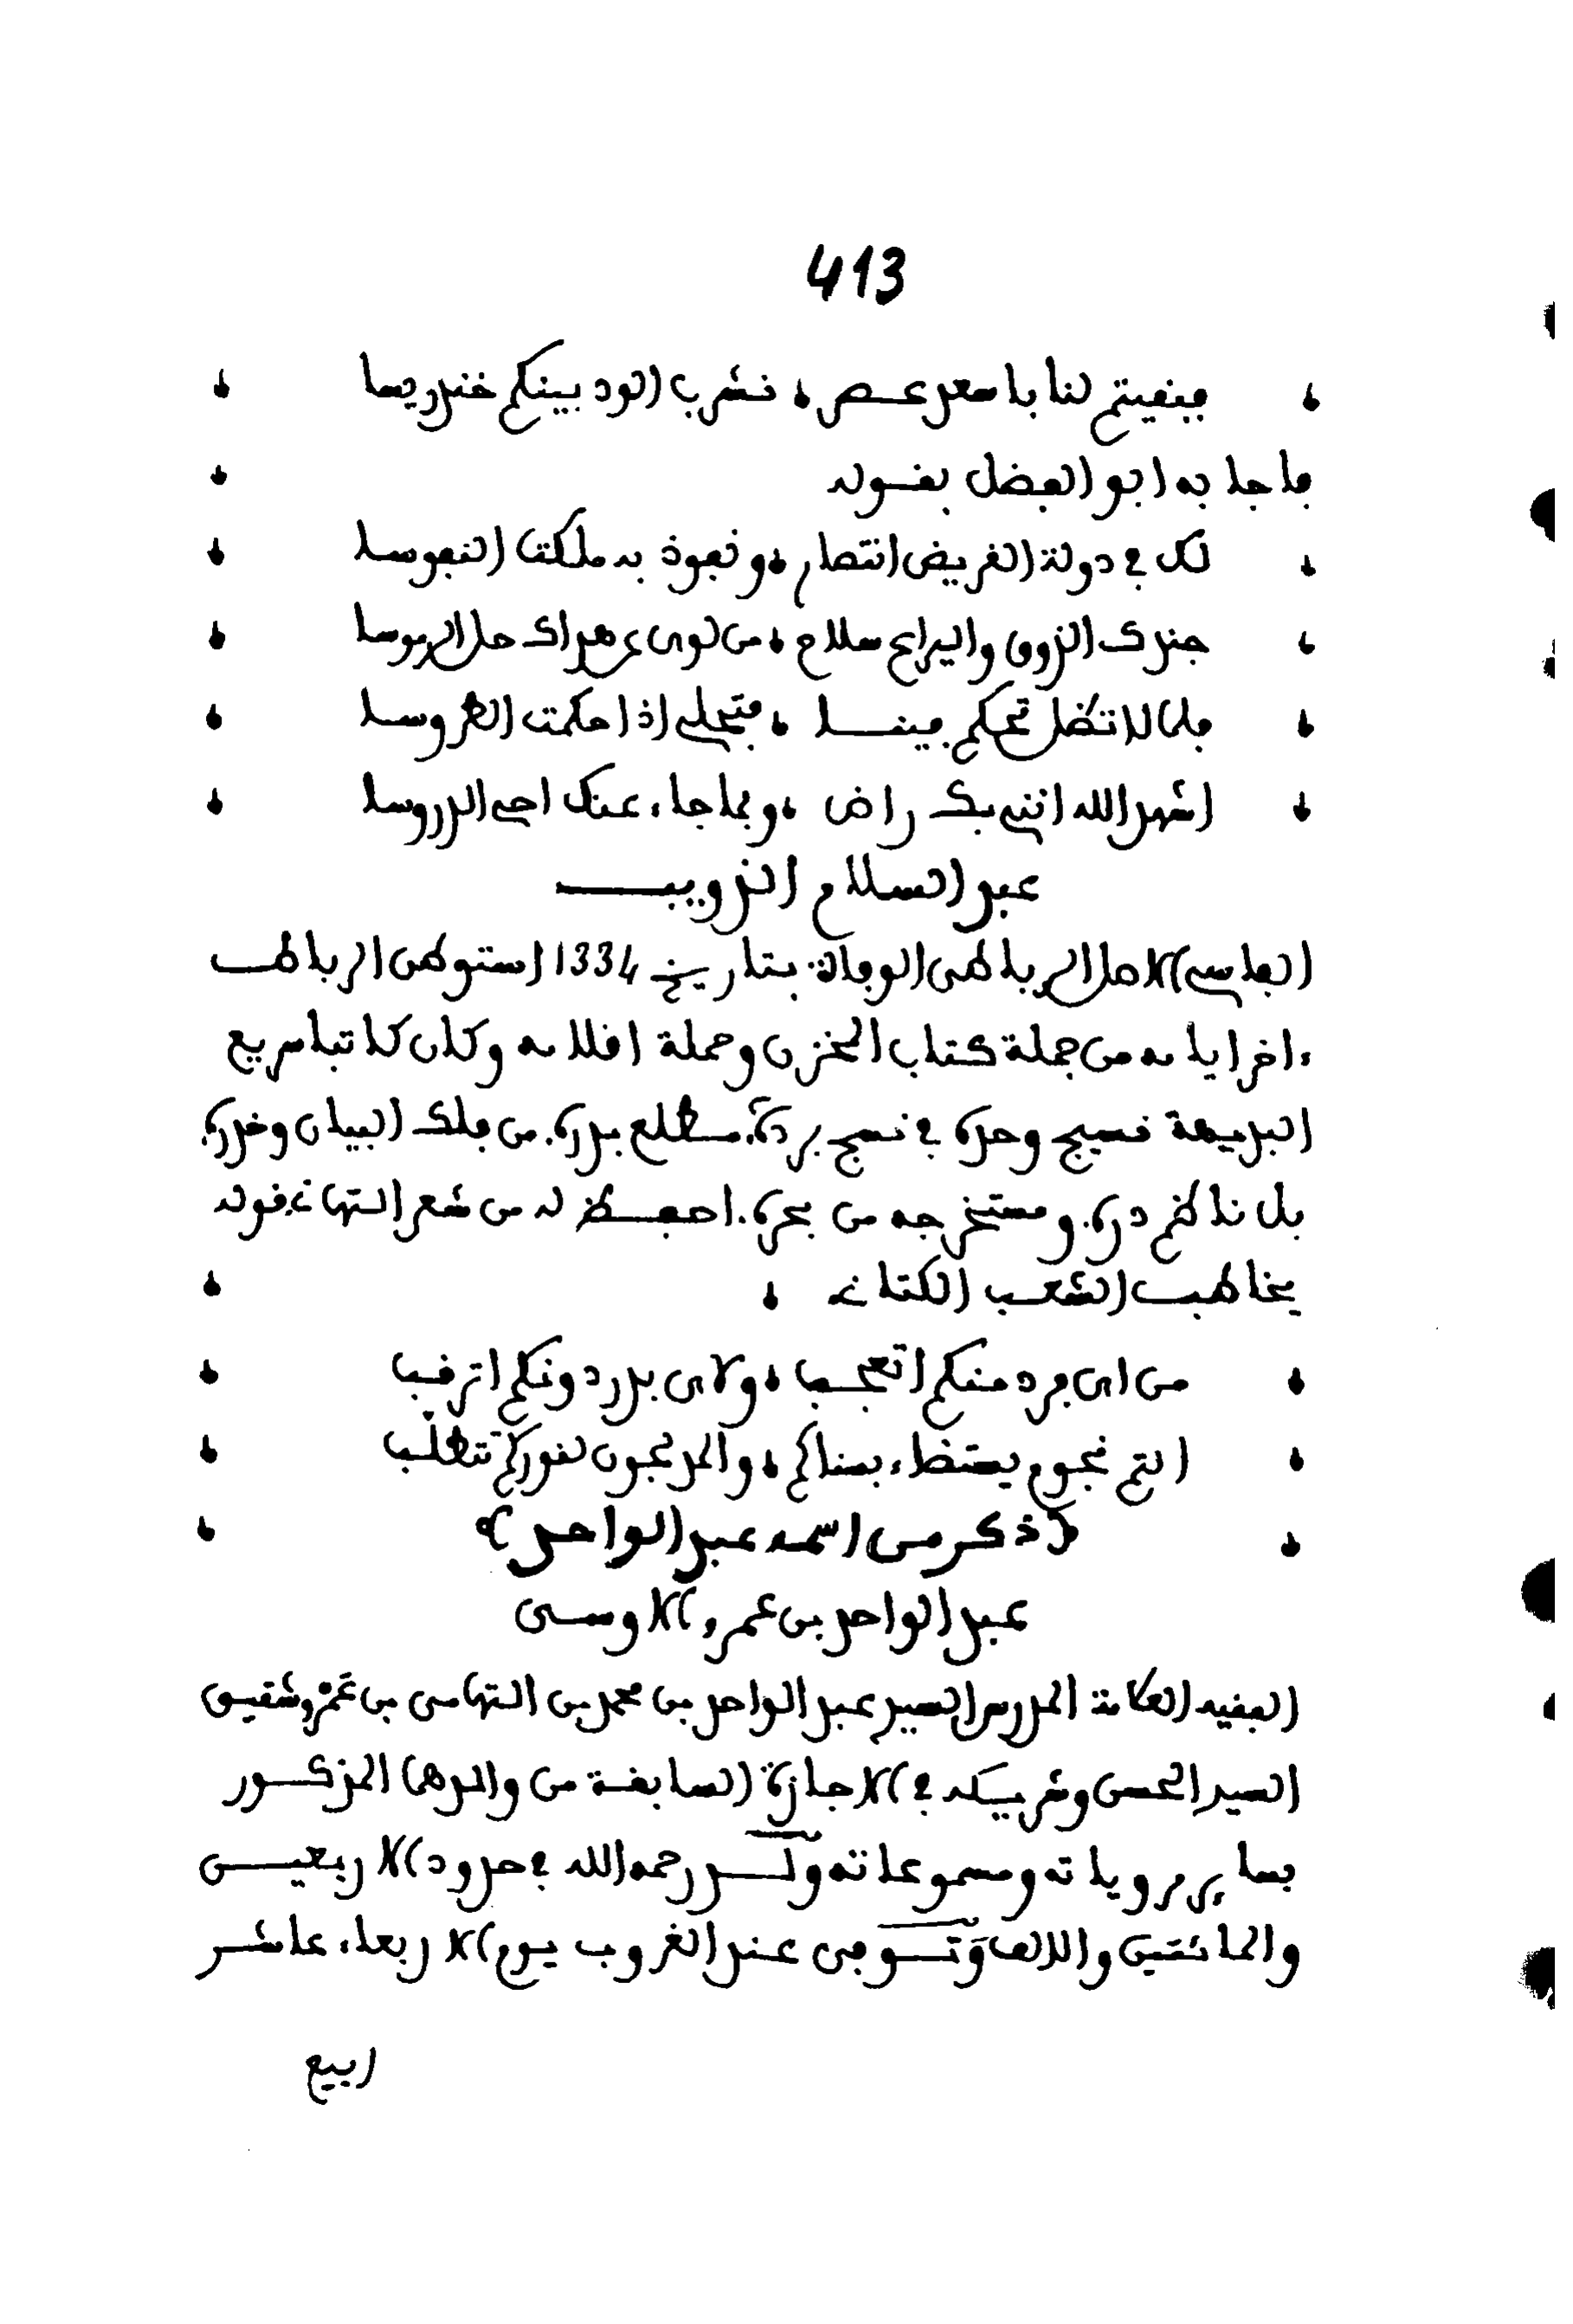 413
فبقيتم لنا باسعد عصر ، نشرب الود بينكم خندريسا
فاجابه ابو الفضل بقوله
لك في دولة القريض انتصار ، ونفوذ به ملكت النفوسا
جندك الذوق واليراع سلاح ، من لوى عن هداك حل الرموسا
فلما لا تظل تحكم فينا ، فتجلي اذا حكمت الطروسا
اشهد الله انني بك راض ، وبما جاء عنك احي الدروسا
عبد السلام الذويب
الفاسي الاصل الرباطي الوفاة بتاريخ 1334 استوطن الرباط
ءاخر ايامه من جملة كتاب المخزن وحملة اقلامه وكان كاتبا سريع
البديهة نسيج وحده في نسج برده. مطلع بدره. من فلك البيان وخدره.
بل ناظم دره. ومستخرجه من بحره. احفظ له من شعر التهاني قوله
يخاطب الشعب الكتاني ،
من اي فرد منكم اتعجب ، ولاي بدر دونكم اترقب
انتم نجوم يستضاء بسناكم ، والمدلجون لنوركم تتطلب
(ذكر من اسمه عبد الواحد)
عبد الواحد بن عمرو الاوسي
الفقيه العلامة المدرس السيد عبد الواحد بن محمد بن التهامي بن عمرو شقيق
السيد الحسن وشريكه في الاجازة السابقة من والدهما المذكور
بسائر مروياته ومسموعاته ولد رحمه الله في حدود الاربعين
والمائتين والالف وتوفي عند الغروب يوم الاربعاء عاشر
ربيع